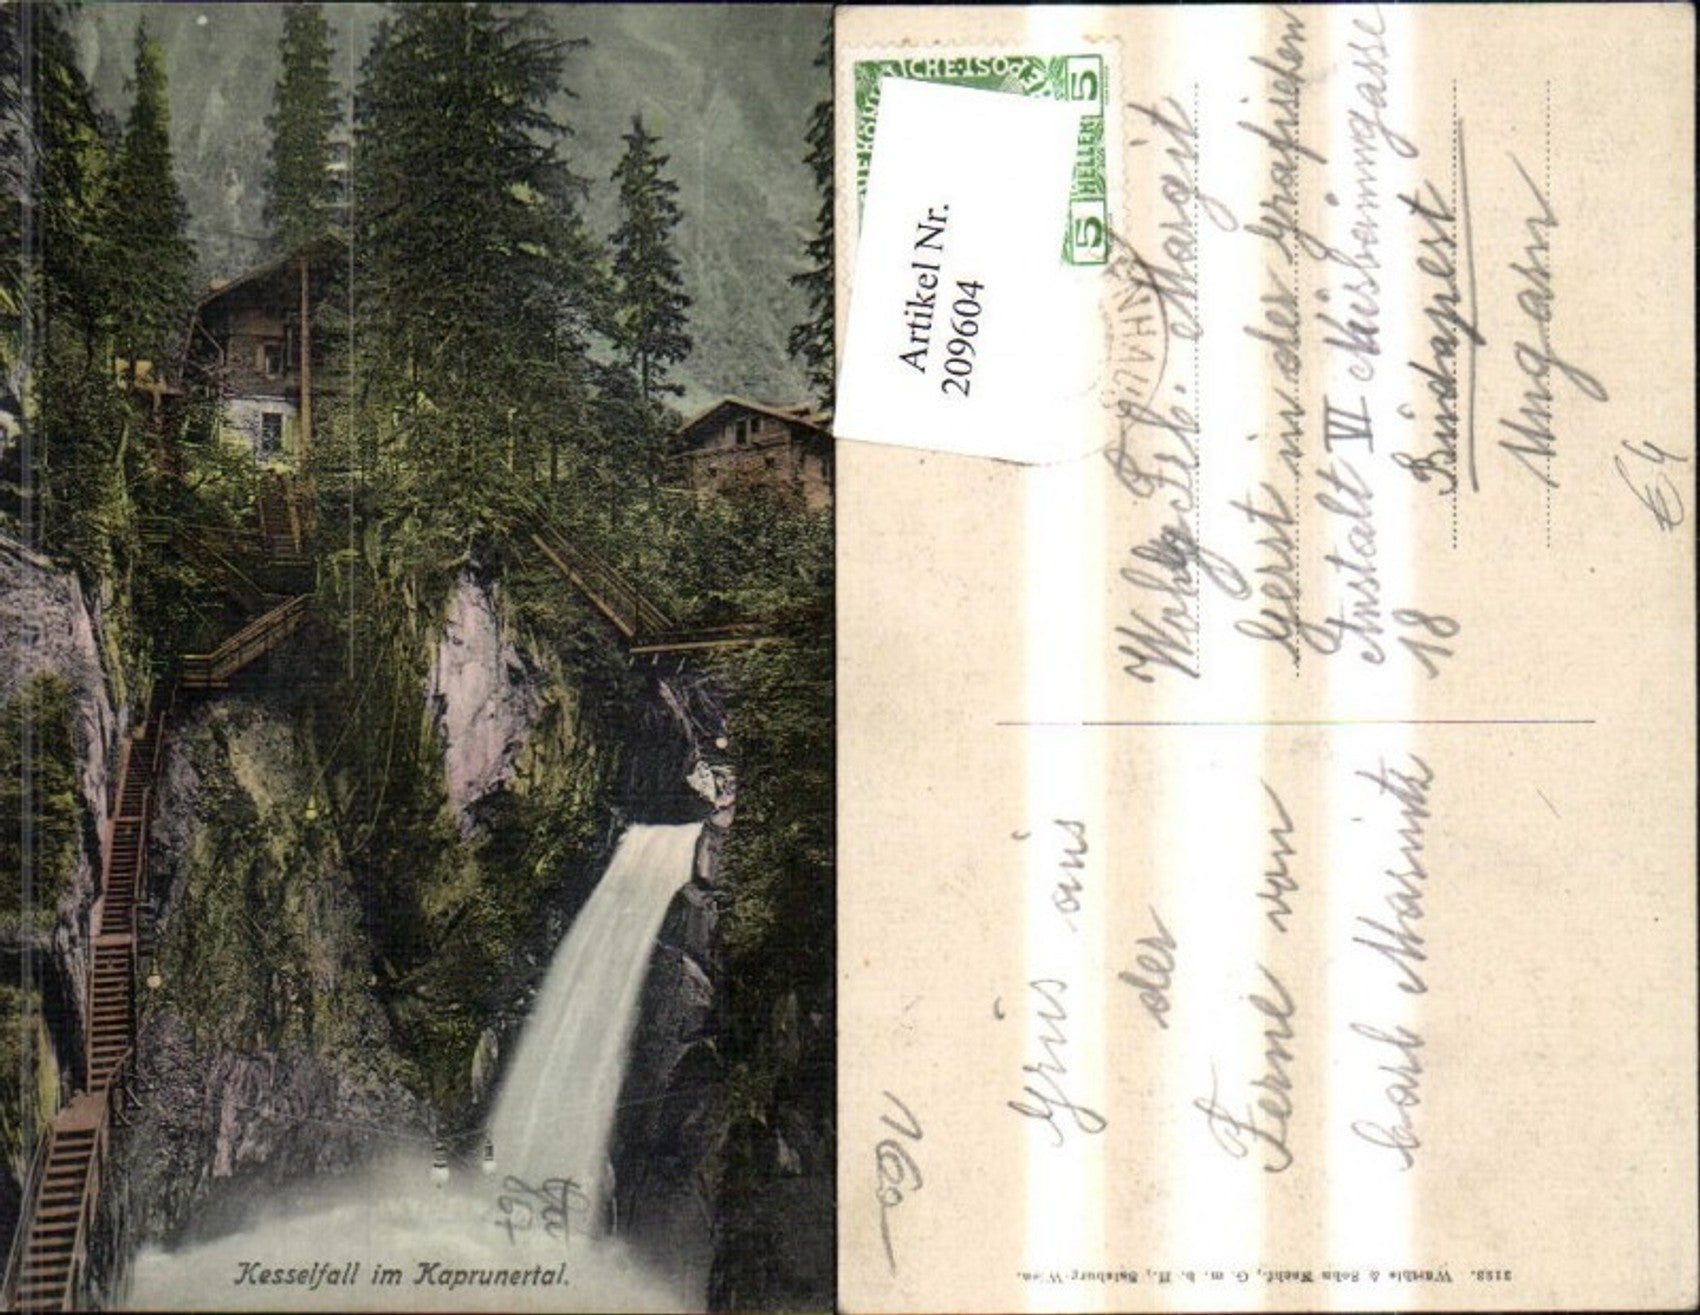 Kesselfall im Kaprunertal.
867
5
5
HELLER
Artikel Nr.
209604
Wohlg. Frl. Margit
Gerst in der Grafischen
Anstalt VI
18
Budapest
Ungarn
€ 4
Grus aus
der
Ferne von
Carl
160
2193. Würthle & Sohn Nachf., G. m. b. H., Salzburg-Wien.